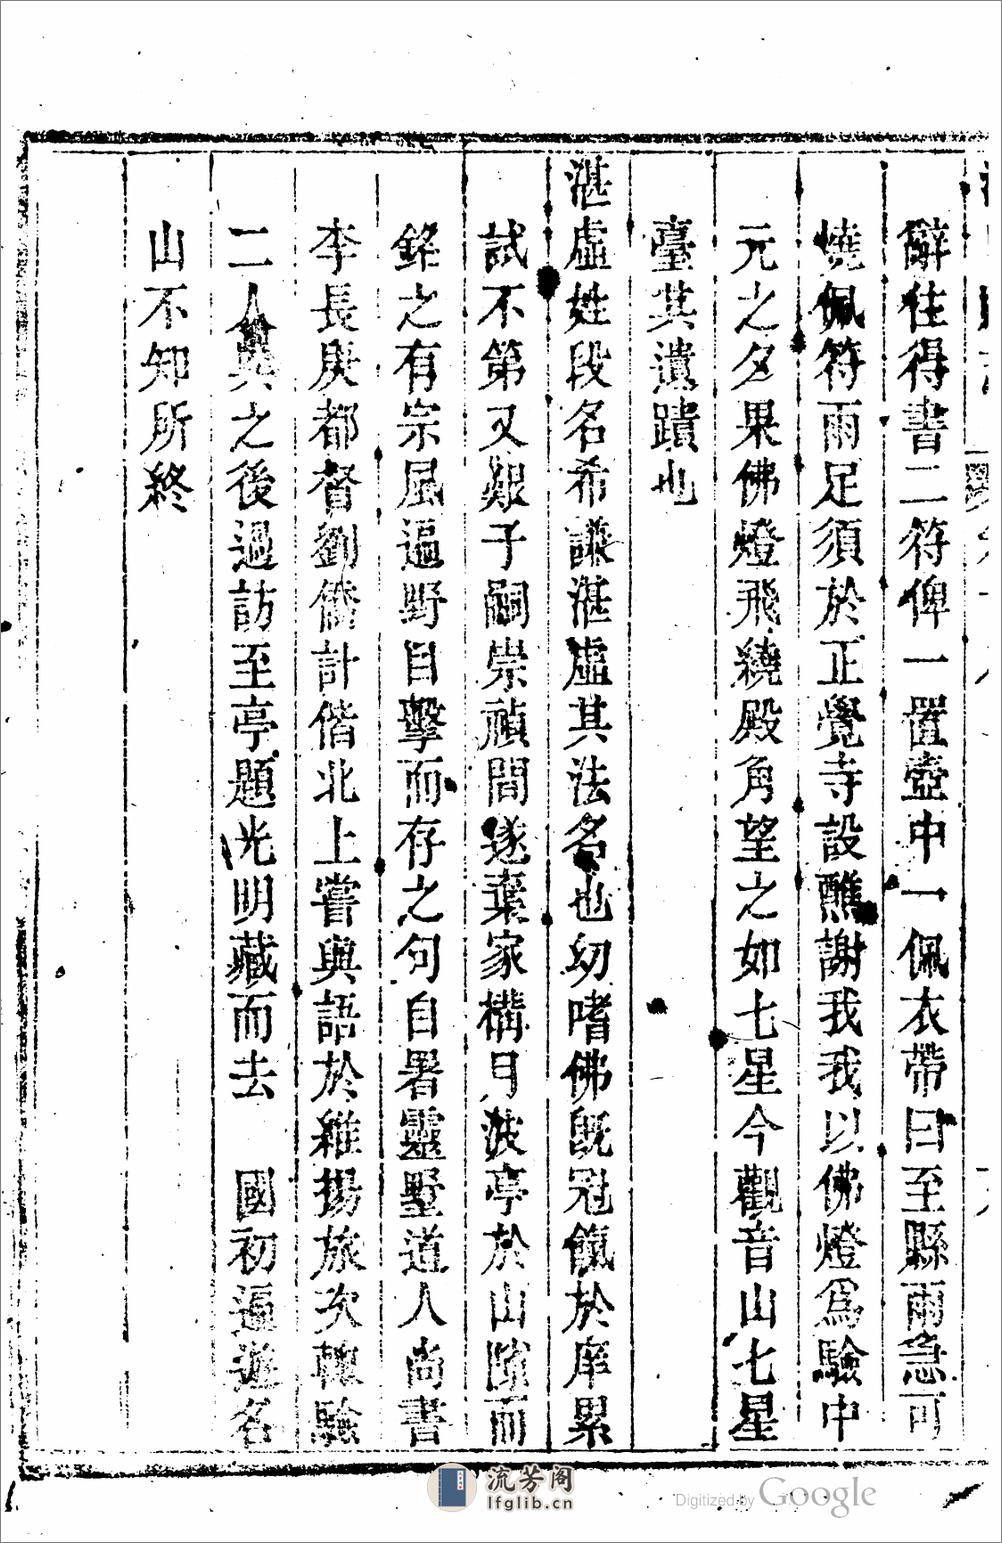 辭往得書二符俾一置壺中一佩衣帶曰至縣雨急可
燒佩符雨足須於正覺寺設醮謝我我以佛燈爲驗中
元之夕果佛燈飛繞殿角望之如七星今觀音山七星
臺其遺蹟也
湛虛姓段名希謙湛虛其法名也幼嗜佛旣冠餼於庠累
試不第又艱子嗣崇禎間遂棄家構月波亭於山隂而
銘之有宗風遍野目擊而存之句自署靈墅道人尚書
李長庚都督劉僑計偕北上嘗與語於維揚旅次輒驗
二人異之後過訪至亭題光明藏而去 國初遍遊名
山不知所終
流芳阁
lfglib.cn
Digitized by Google